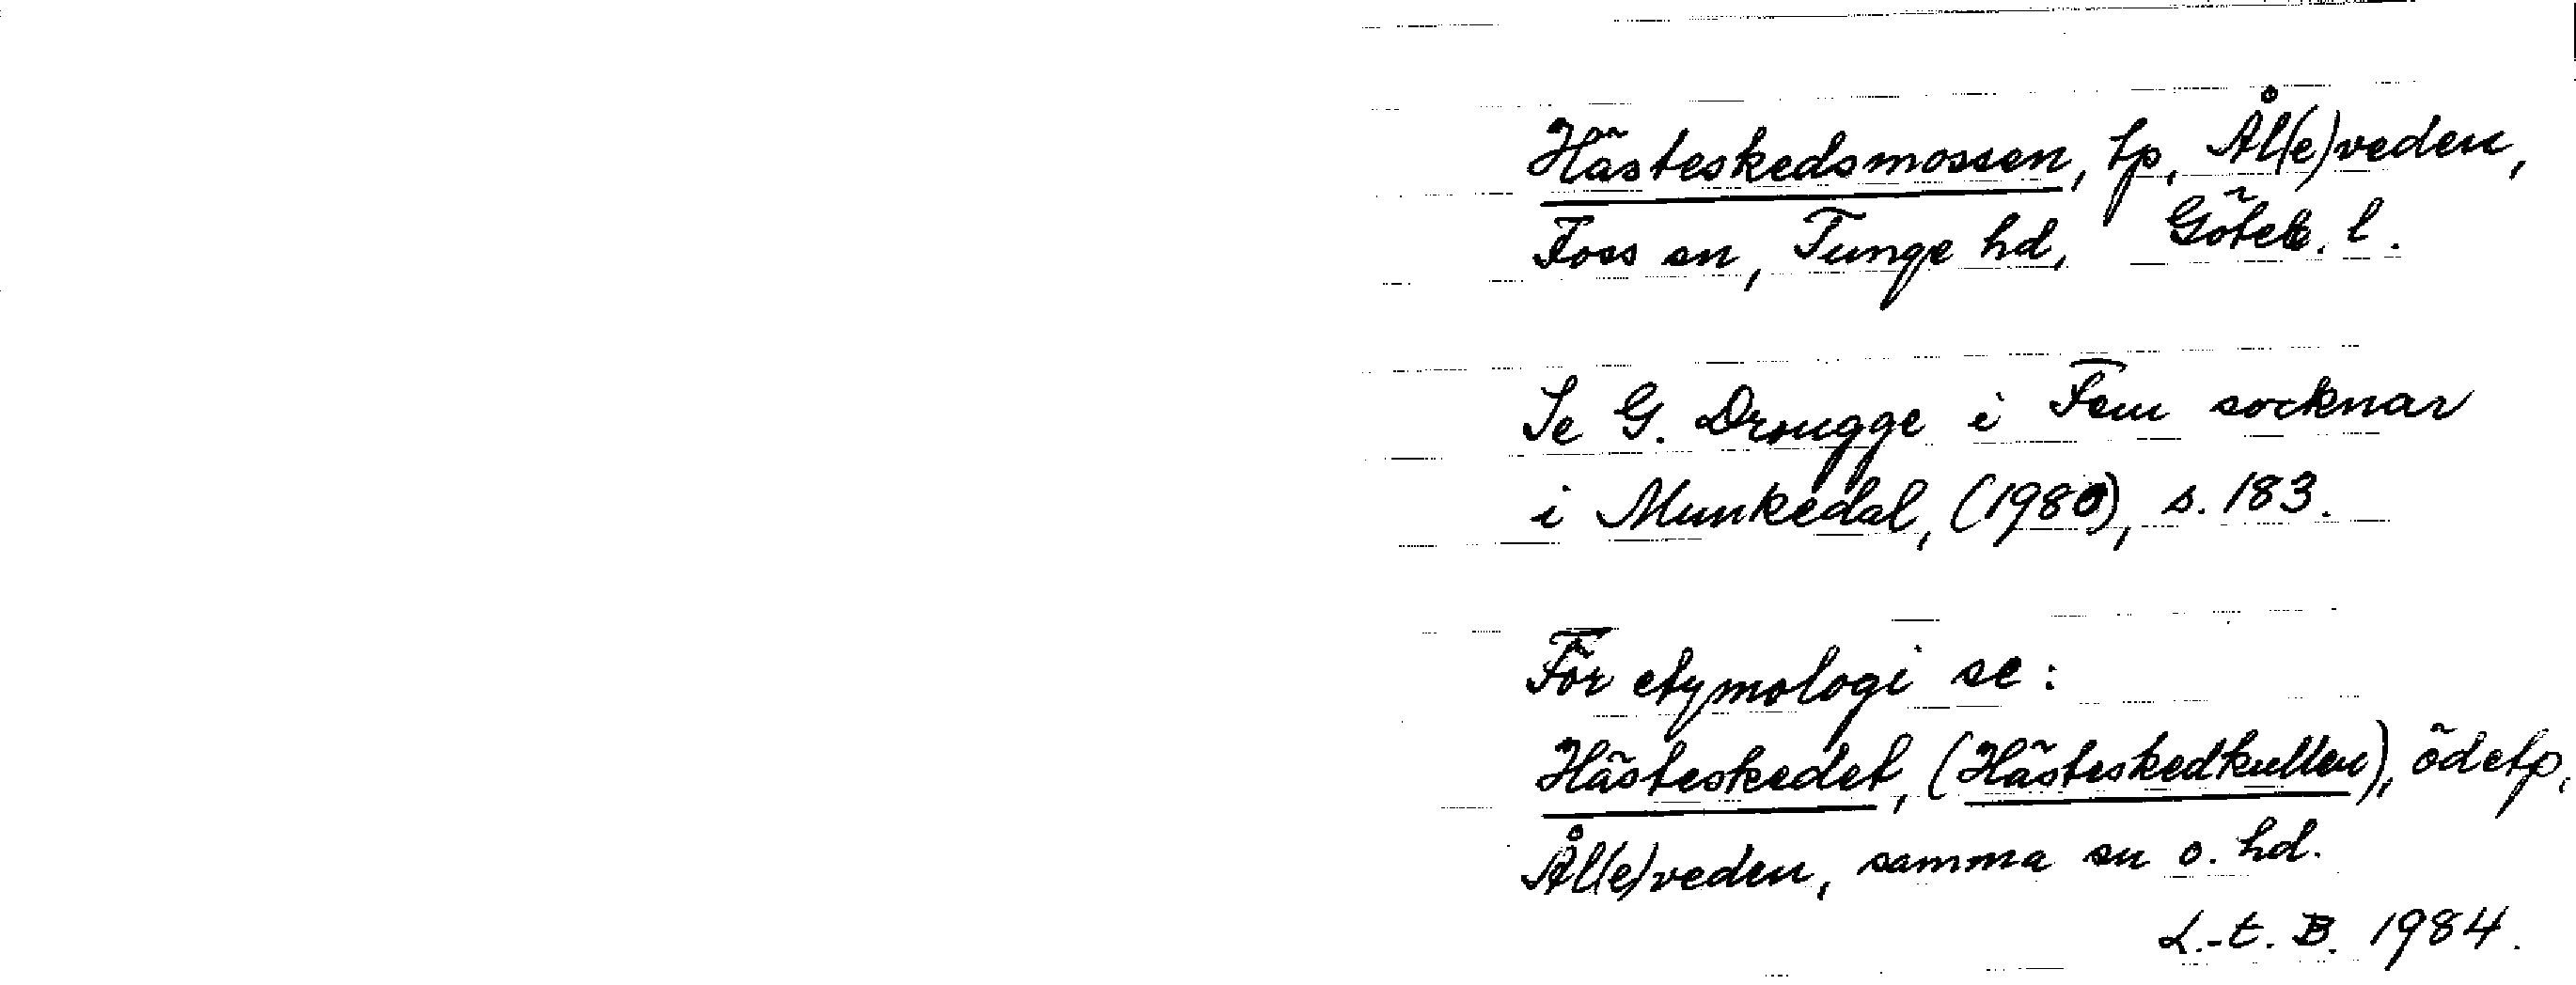 Hästeskedsmossen, tp, Ål(e)veden,
Foss sn, Tunge hd, Göteb. l.
Se G. Drougge i Fem socknar
i Munkedal, (1980), s. 183.
För etymologi se:
Hästeskedet, (Hästeskedkullen), ödetp,
Ål(e)veden, samma sn o. hd.
L.-E. B. 1984.